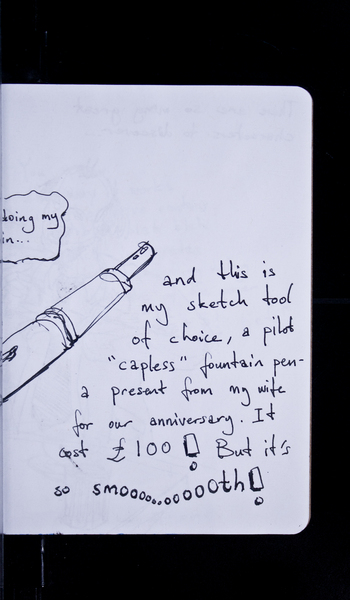 doing my
in...
and this is
my sketch tool
of choice, a pilot
"capless" fountain pen-
a present from my wife
for our anniversary. It
cost £100! But it's
so smooo....ooooth!